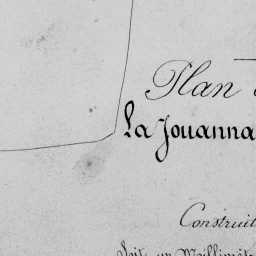 Plan
La Jouanna
Construit
Soit un Millimèt